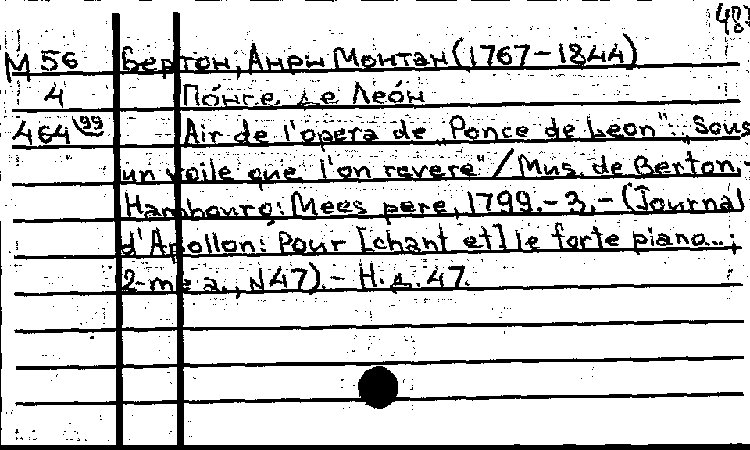 487
М 56 Бертон, Анри Монтан (1767-1844)
4 Понсе де Лео́н
464 99 Air de l'opera de „Ponce de Leon": „Sous
un voile que l'on revere" / Mus. de Berton.-
Hambourg: Mees pere, 1799.- 3,- (Journal
d'Apollon: Pour [chant et] le forte piano...;
2-me a., N47).- Н.д. 47.